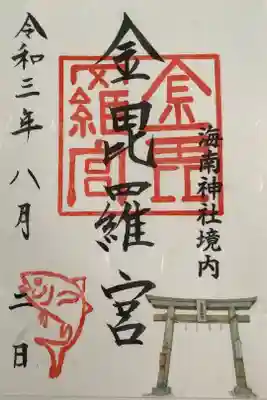 海南神社境内
金毘羅宮
金毘羅宮
令和三年八月二日